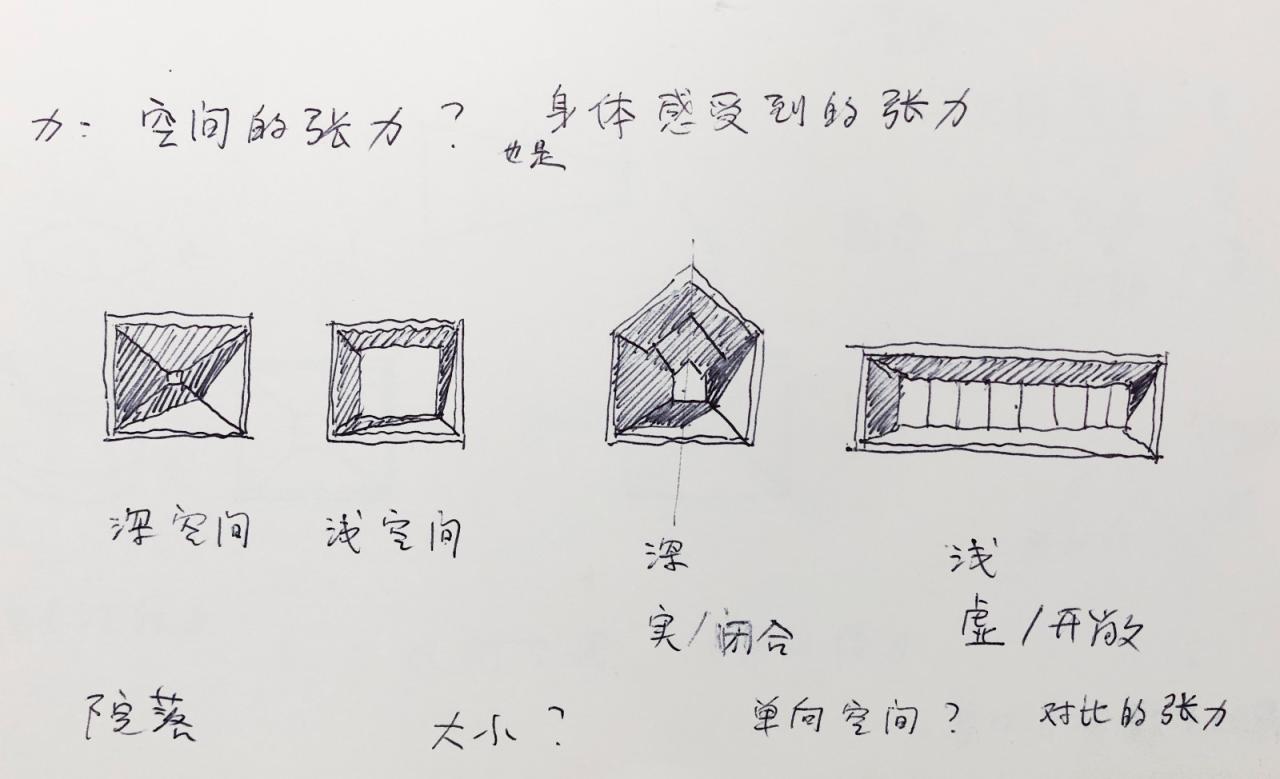 力：空间的张力？ 身体感受到的张力
也是
深空间 浅空间
深 浅
实/闭合 虚/开敞
院落 大小？ 单向空间？ 对比的张力